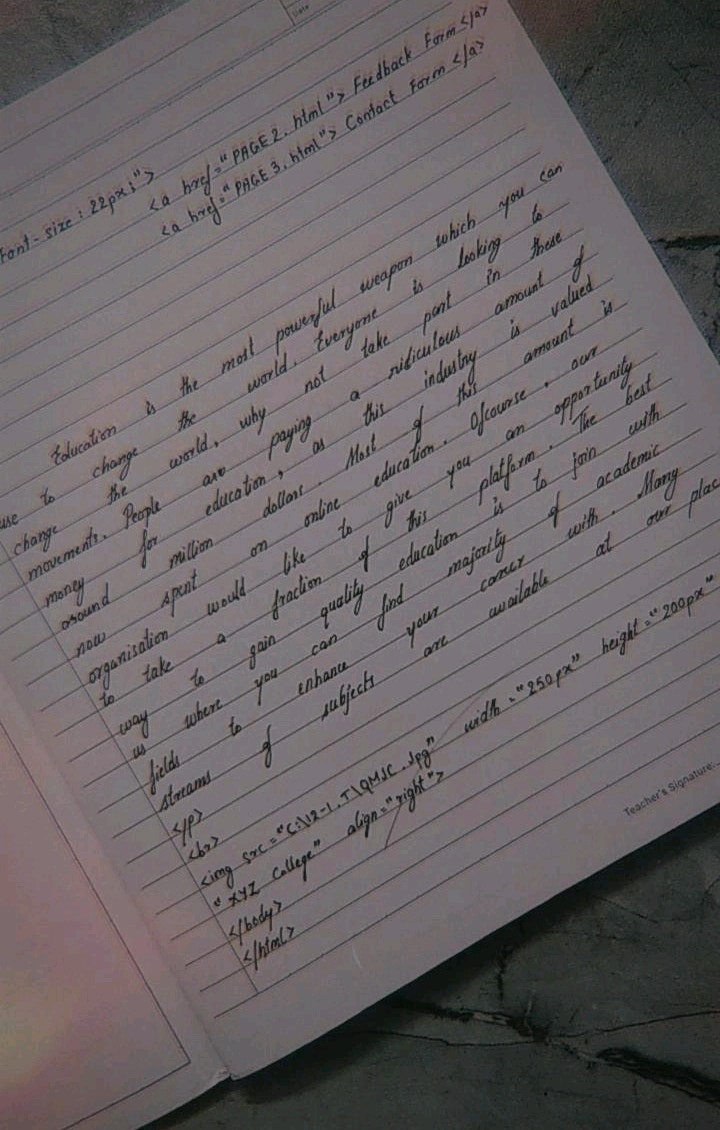 Date
<a href="PAGE 2.html"> Feedback Form </a>
font-size: 22px;">
<a href="PAGE 3.html"> Contact Form </a>
Education is the most powerful weapon which you can
use to change the world. Everyone is looking to
change the world, why not take part in these
movements. People are paying a ridiculous amount of
money for education, as this industry is valued
around million dollars. Most of this amount is
now spent on online education. Ofcourse, our
organisation would like to give you an opportunity
to take a fraction of this platform. The best
way to gain quality education is to join with
us where you can find majority of academic
fields to enhance your career with. Many
streams of subjects are available at our place
</p>
<br>
<img src="C:\12-1.T\QMJC.Jpg" width="250px" height="200px"
"XYZ College" align="right">
</body>
</html>
Teacher's Signature: